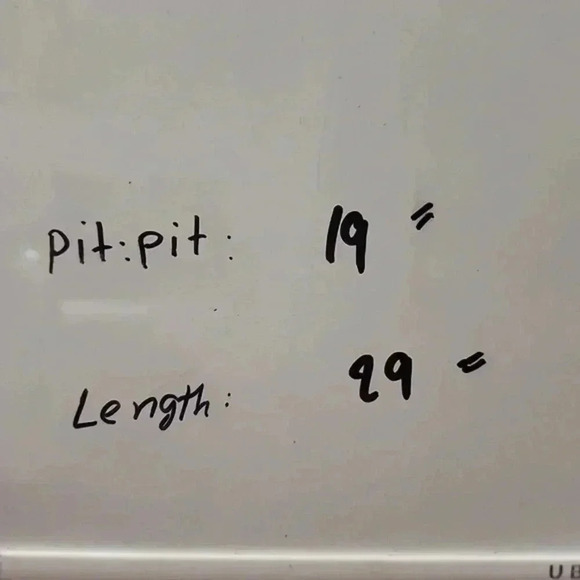 pit:pit: 19"
Length: 29"